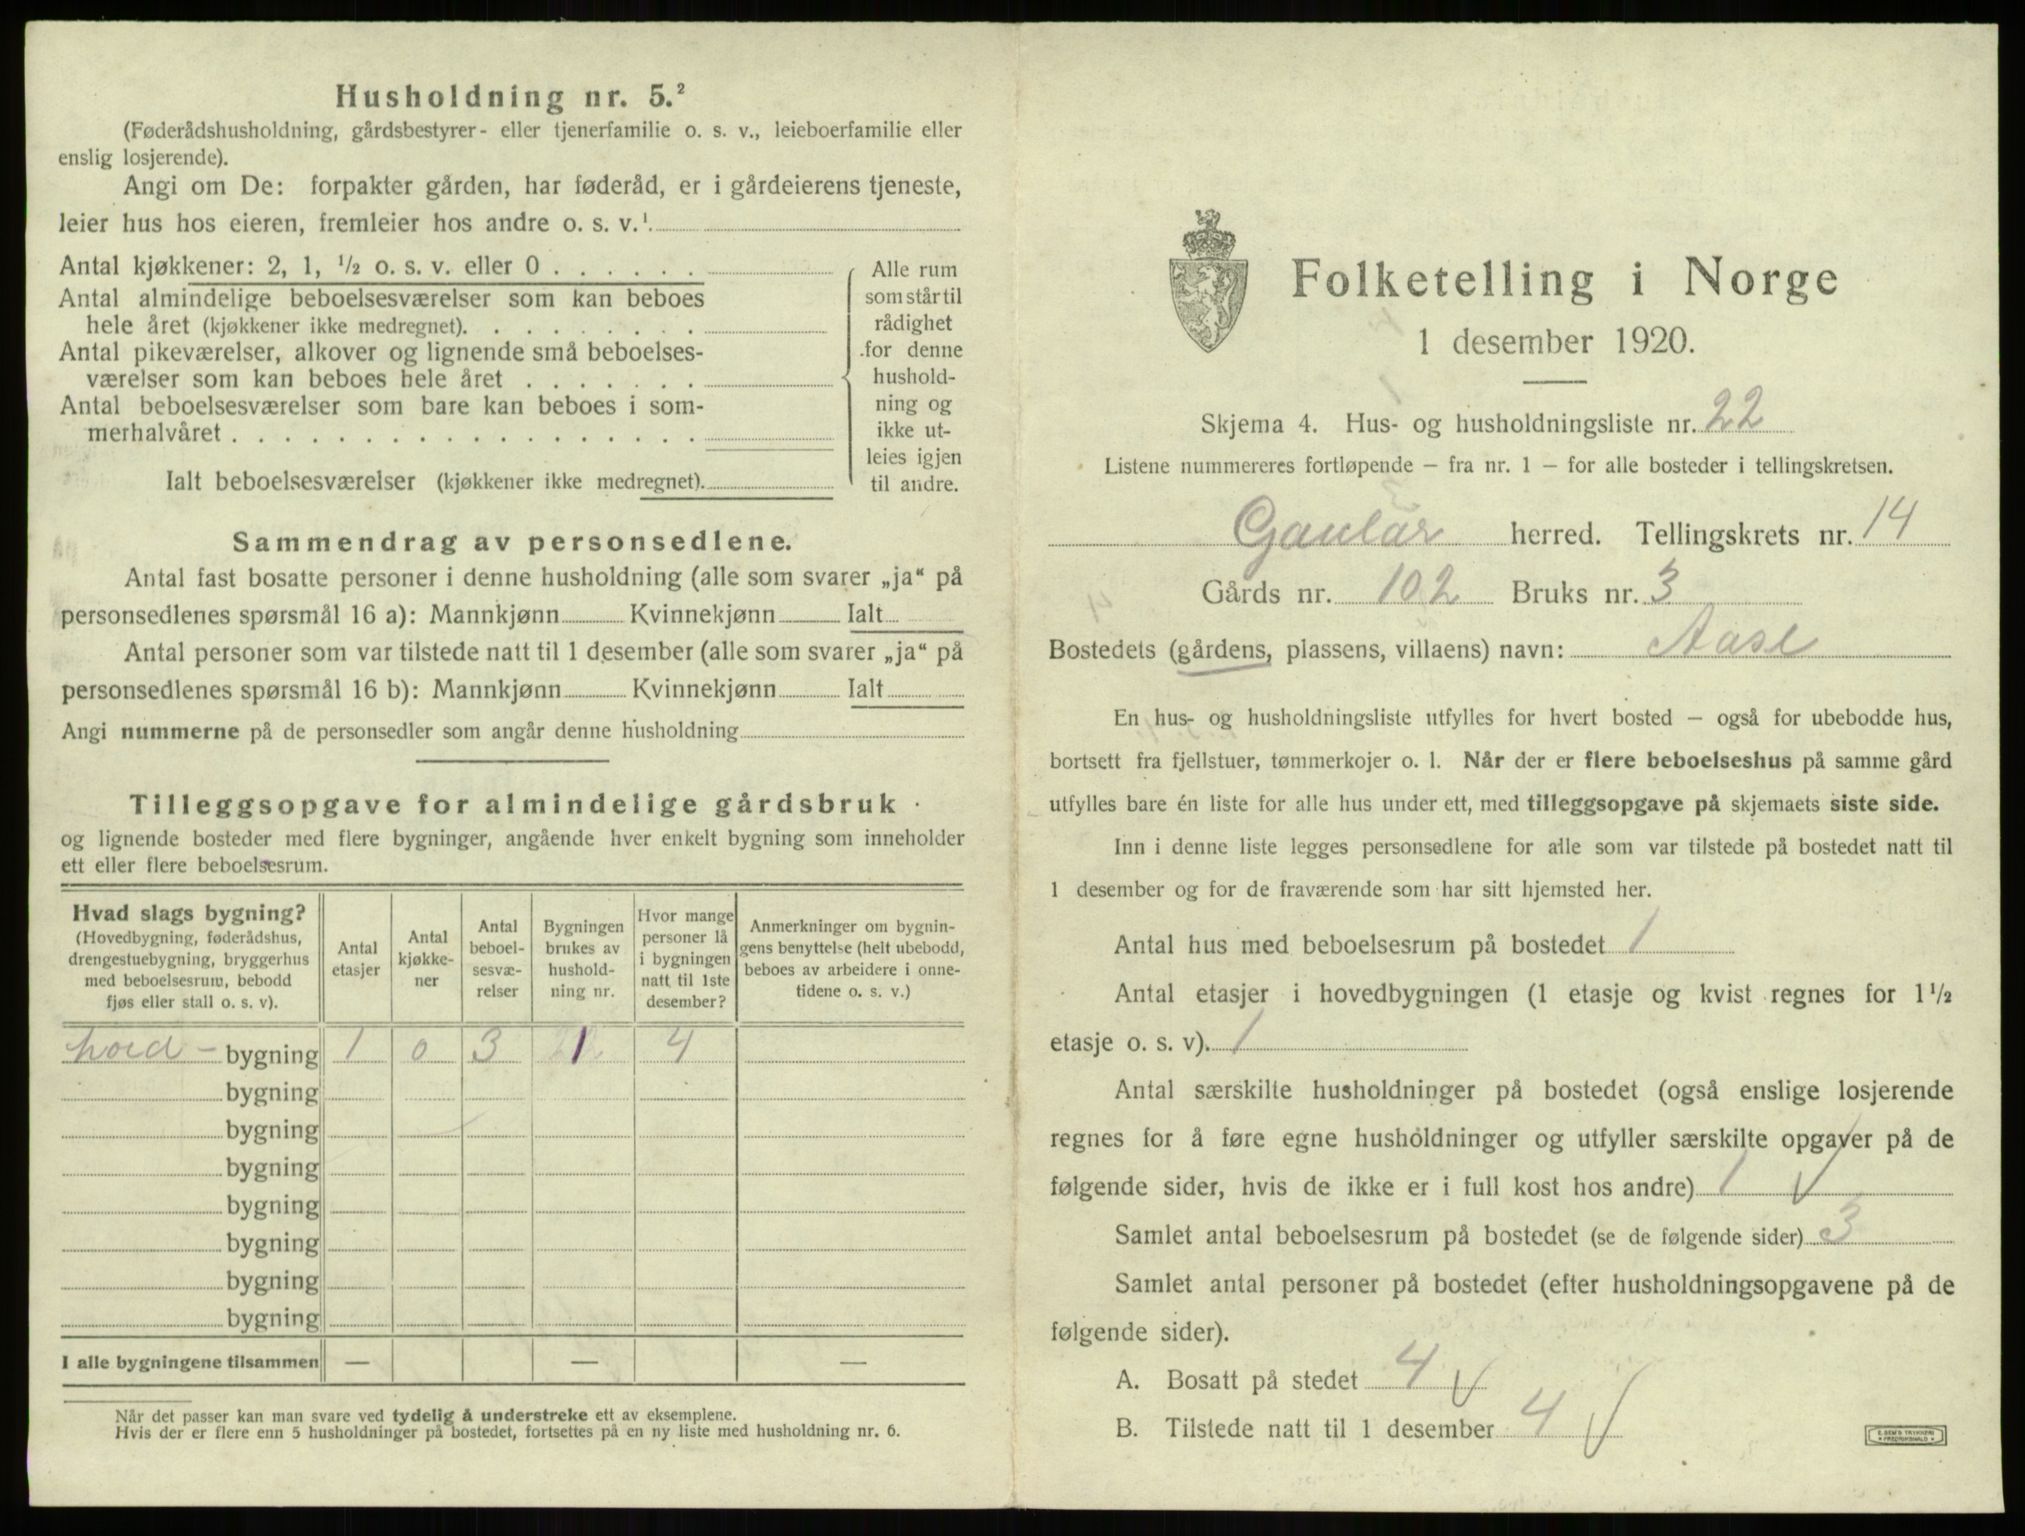 Husholdning nr. 5.²
(Føderådshusholdning, gårdsbestyrer- eller tjenerfamilie o. s. v., leieboerfamilie eller
enslig losjerende).
Angi om De: forpakter gården, har føderåd, er i gårdeierens tjeneste,
leier hus hos eieren, fremleier hos andre o. s. v.¹
Antal kjøkkener: 2, 1, ½ o. s. v. eller 0 . . . . . .
Antal almindelige beboelsesværelser som kan beboes
hele året (kjøkkener ikke medregnet). . . . . . . . .
Antal pikeværelser, alkover og lignende små beboelses-
værelser som kan beboes hele året . . . . . . .
Antal beboelsesværelser som bare kan beboes i som-
merhalvåret . . . . . . . . . . . . . . . . . .
Ialt beboelsesværelser (kjøkkener ikke medregnet).
Alle rum
som står til
rådighet
for denne
hushold-
ning og
ikke ut-
leies igjen
til andre.
Sammendrag av personsedlene.
Antal fast bosatte personer i denne husholdning (alle som svarer „ja“ på
personsedlenes spørsmål 16 a): Mannkjønn Kvinnekjønn Ialt
Antal personer som var tilstede natt til 1 desember (alle som svarer „ja“ på
personsedlenes spørsmål 16 b): Mannkjønn Kvinnekjønn Ialt
Angi nummerne på de personsedler som angår denne husholdning
Tilleggsopgave for almindelige gårdsbruk
og lignende bosteder med flere bygninger, angående hver enkelt bygning som inneholder
ett eller flere beboelsesrum.
Hvad slags bygning?
(Hovedbygning, føderådshus,
drengestuebygning, bryggerhus
med beboelsesrum, bebodd
fjøs eller stall o. s. v).
Antal
etasjer
Antal
kjøkke-
ner
Antal
beboel-
sesvæ-
relser
Bygningen
brukes av
hushold-
ning nr.
Hvor mange
personer lå
i bygningen
natt til 1ste
desember?
Anmerkninger om bygnin-
gens benyttelse (helt ubebodd,
beboes av arbeidere i onne-
tidene o. s. v.)
hoved- bygning 1 0 3 1 4
bygning
bygning
bygning
bygning
bygning
bygning
bygning
I alle bygningene tilsammen — — —
Når det passer kan man svare ved tydelig å understreke ett av eksemplene.
Hvis der er flere enn 5 husholdninger på bostedet, fortsettes på en ny liste med husholdning nr. 6.
Folketelling i Norge
1 desember 1920.
Skjema 4. Hus- og husholdningsliste nr. 22
Listene nummereres fortløpende – fra nr. 1 – for alle bosteder i tellingskretsen.
Gaular herred. Tellingskrets nr. 14
Gårds nr. 102 Bruks nr. 3
Bostedets (gårdens, plassens, villaens) navn: Aase
En hus- og husholdningsliste utfylles for hvert bosted – også for ubebodde hus,
bortsett fra fjellstuer, tømmerkojer o. l. Når der er flere beboelseshus på samme gård
utfylles bare én liste for alle hus under ett, med tilleggsopgave på skjemaets siste side.
Inn i denne liste legges personsedlene for alle som var tilstede på bostedet natt til
1 desember og for de fraværende som har sitt hjemsted her.
Antal hus med beboelsesrum på bostedet 1
Antal etasjer i hovedbygningen (1 etasje og kvist regnes for 1½
etasje o. s. v). 1
Antal særskilte husholdninger på bostedet (også enslige losjerende
regnes for å føre egne husholdninger og utfyller særskilte opgaver på de
følgende sider, hvis de ikke er i full kost hos andre) 1
Samlet antal beboelsesrum på bostedet (se de følgende sider) 3
Samlet antal personer på bostedet (efter husholdningsopgavene på de
følgende sider).
A. Bosatt på stedet 4
B. Tilstede natt til 1 desember 4
E. SEM'S TRYKKERI
FREDRIKSHALD